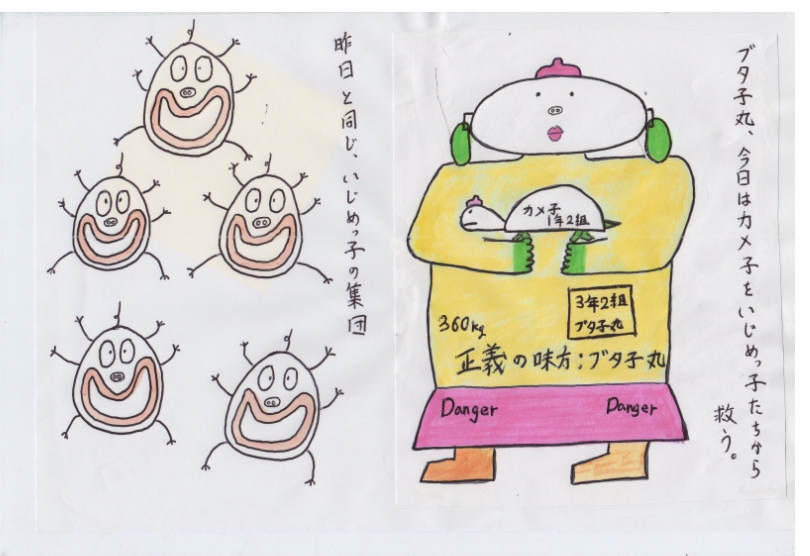 ブタ子丸、今日はカメ子をいじめっ子たちから
救う。
カメ子
1年2組
3年2組
ブタ子丸
360kg
正義の味方:ブタ子丸
Danger
Danger
昨日と同じ、いじめっ子の集団